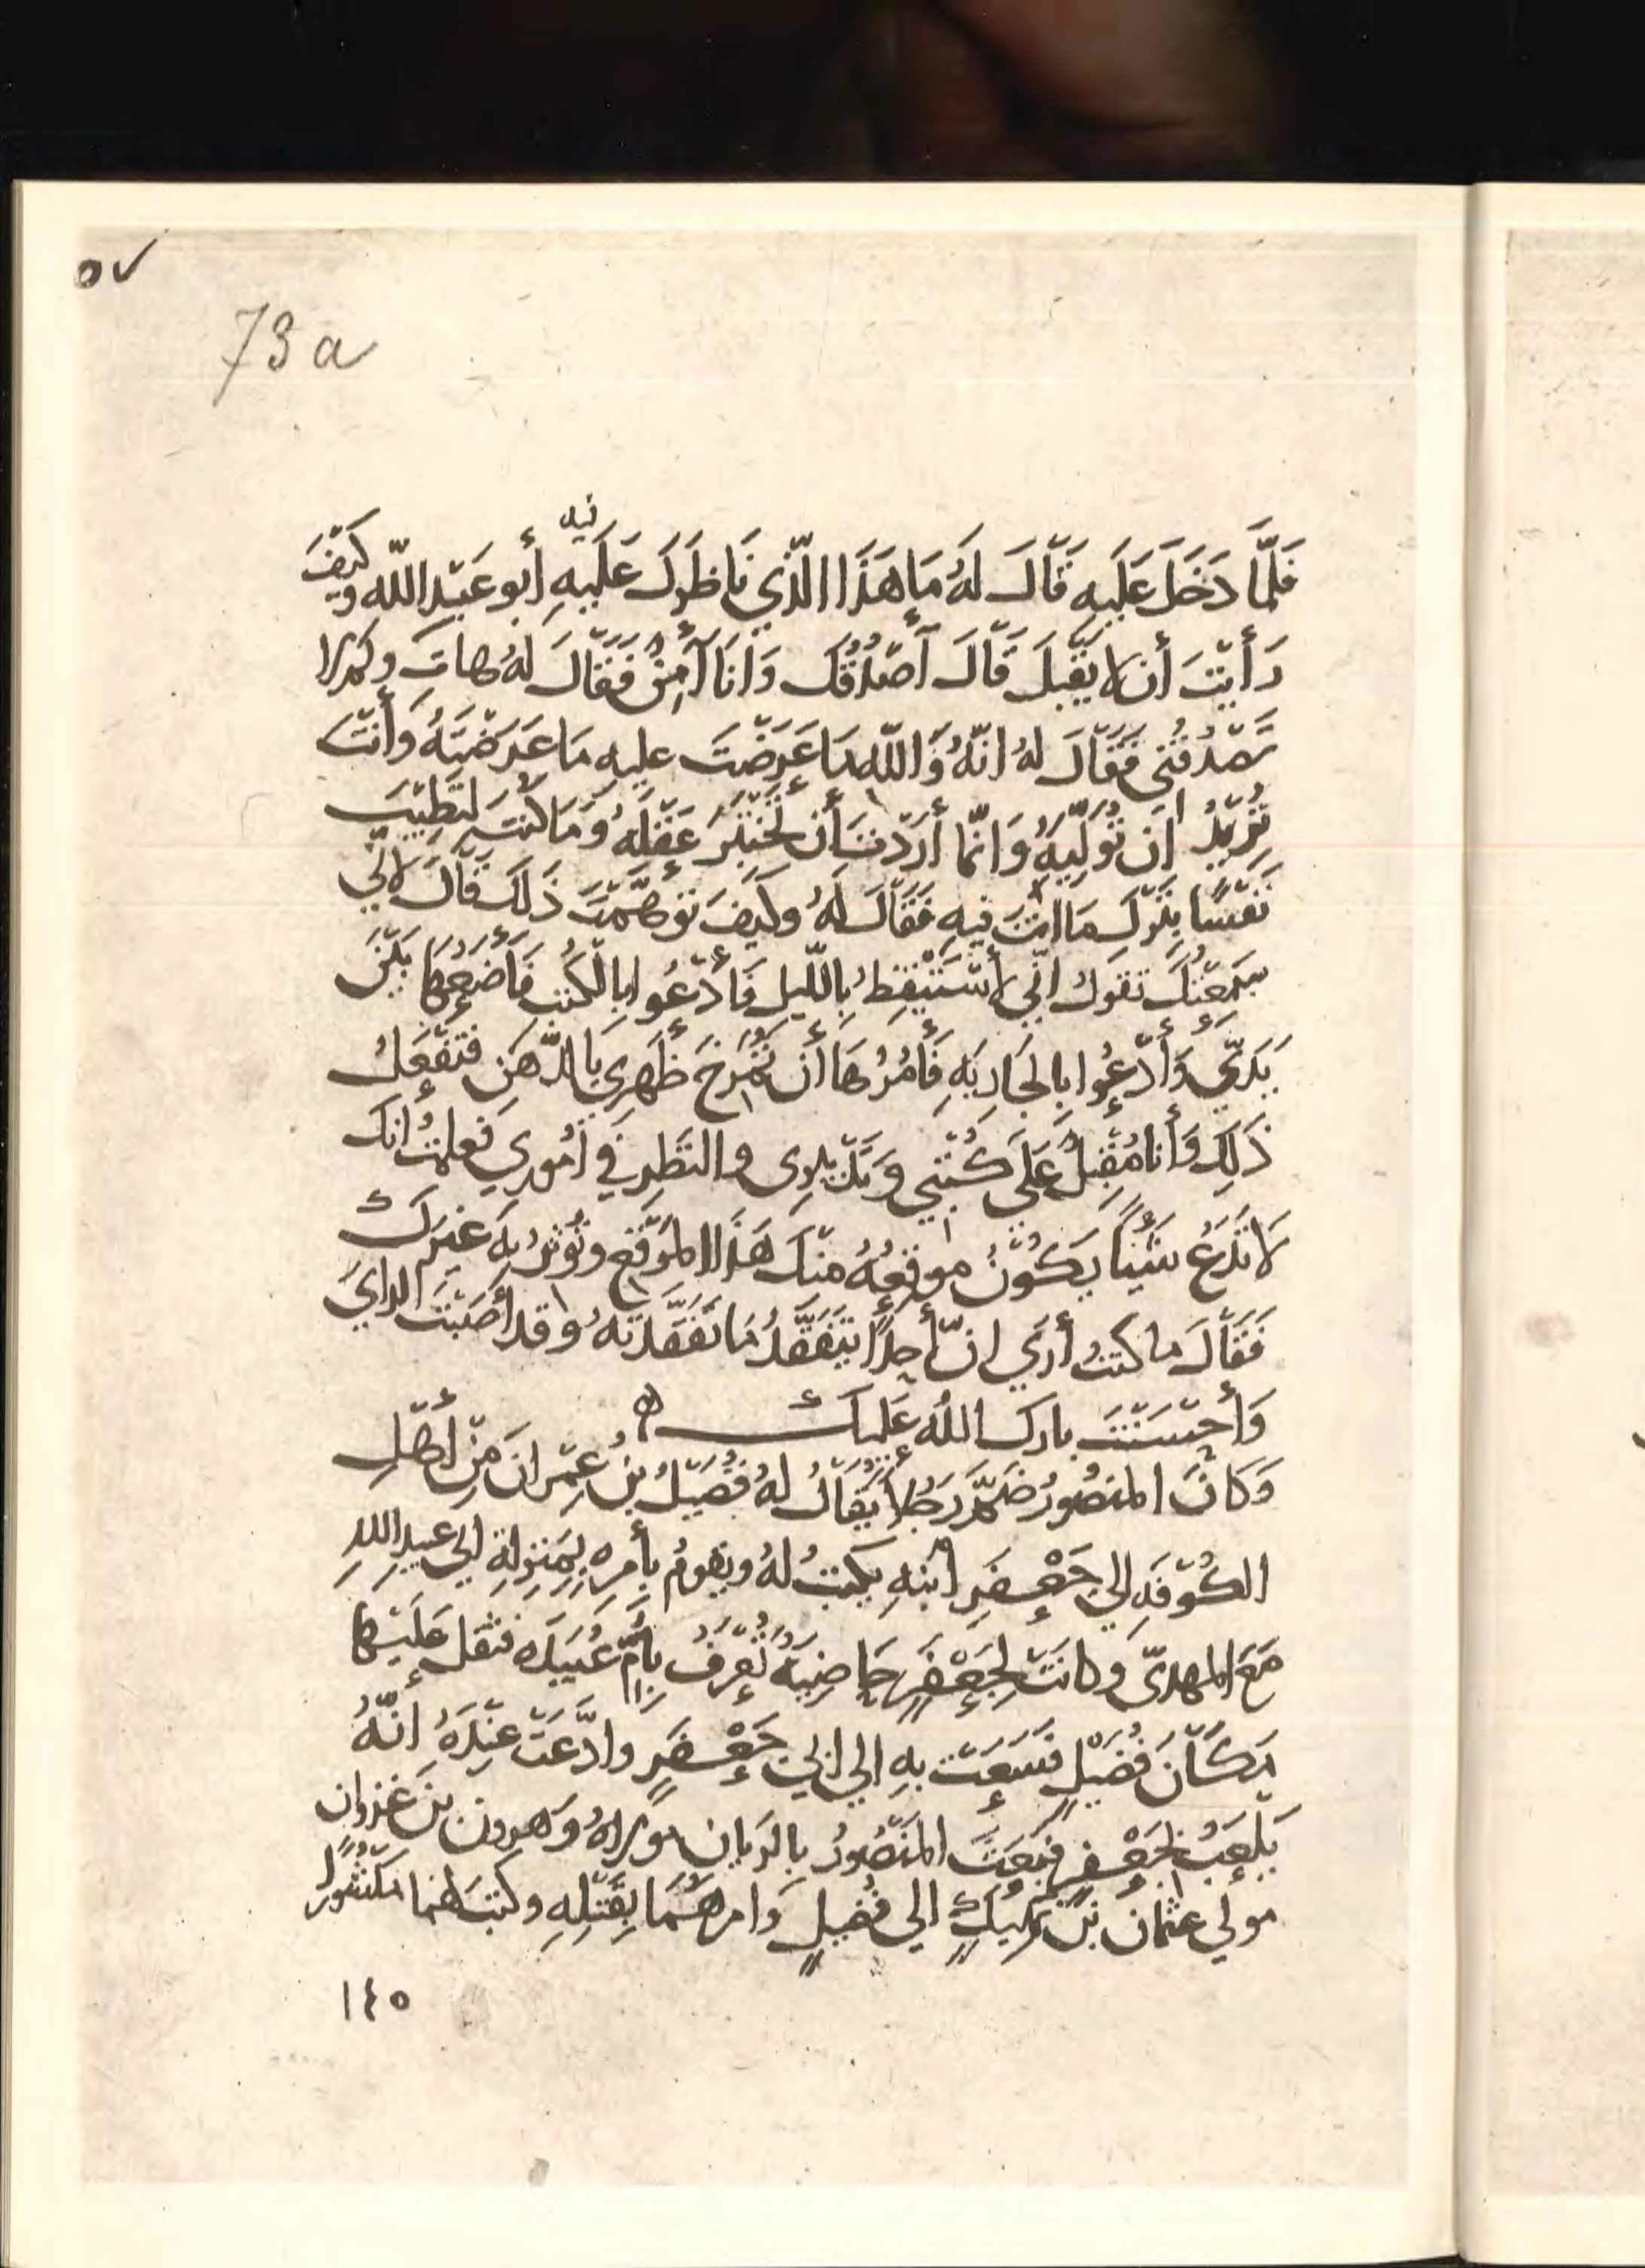 ٥٧
73 a
فَلَمَّا دَخَلَ عَلَيهِ قَالَ لَهُ مَا هَذَا الَّذِي نَاظَرَكَ عَلَيهِ أبو عَبْد اللّه وكَيْفَ
فيه
رَأَيْتَ أن لا يَقْبَلَ قَالَ أَصْدُقُكَ وَأنَا آمِنٌ فَقَالَ لهُ هاتَ وكم لا
تَصْدُقُنِي فَقَالَ لهُ انّهُ وَاللّه مَا عَرَضْتَ عليهِ مَا عَرَضْتَهُ وَأنْتَ
تُرِيْدُ ان تُوَلِّيَهُ وَانّما أرَدْتَ أن تَخْتَبِرَ عَقْلَهُ وَمَا كُنْتَ لتَطِيْبَ
نَفْسًا بِتَرْكِ مَا انْتَ فيهِ فَقَالَ لَهُ وكَيْفَ تَوَهَّمْتَ ذَلكَ قَالَ لاني
سَمِعْتُكَ تقول انّي لأسْتَيْقِظُ بِاللّيل فَأدْعُوا بِالكُتبِ فَأضَعُهَا بَيْنَ
يَدَيَّ وَأدْعُوا بالجَارِيَةِ فَأمُرُهَا أن تُمْرِخَ ظَهرِي بَالدُّهنِ فتَفْعَلُ
ذَلِكَ وَأنا مُقْبِلٌ عَلَى كُتْبِي وَتَدْبِيرِى والنَظَرِ في أمُورِي فَعلمتُ انكَ
لاَ تَدَعُ شَيْئًا يَكُوْنُ مَوقِعُهُ مِنْكَ هَذَا المَوْقعَ وتُؤْثرُ بِهَ غَيْرَكَ
فَقَالَ ما كنتُ أرَي انّ أحدًا يَتَفَقَّدُ مَا تَفَقَّدْتَهُ وقد أصَبْتَ الرايَ
وَأحْسَنْتَ بارك اللهُ عَلَيك ه
وَكَانَ المنصُورُ ضَمَّ رَجُلاً يُقَالُ لهُ فُضَيْلُ بنُ عِمْرانَ مَنْ أهْلِ
الكُوْفَهِ الي جَعْفَرِ ابْنهِ يَكْتبُ لهُ ويقومُ بأمرهِ بِمَنزِلةِ ابي عبيد اللهِ
مَعَ المهديّ وكانَتْ لِجَعْفَرٍ حَاضِنةٌ تُعْرَفُ بأمِّ عُبَيْدَه فثقلَ عَلَيْهَا
مَكَانَ فُضَيْلٍ فَسَعَتْ بهِ الي ابي جَعْفَرٍ وادَّعَتْ عِنْدَهُ انّهُ
يَلْعَبُ بجَعْفرٍ فبَعَثَ المَنْصُورُ بالرَيان مولاهُ وَهرون بن غَزوان
مولي عثمان بن نَهيكٍ الي فُضَيلٍ وَامرهُمَا بِقَتْلِهِ وكتبَ لهُما مَنْشُورًا
١٤٥